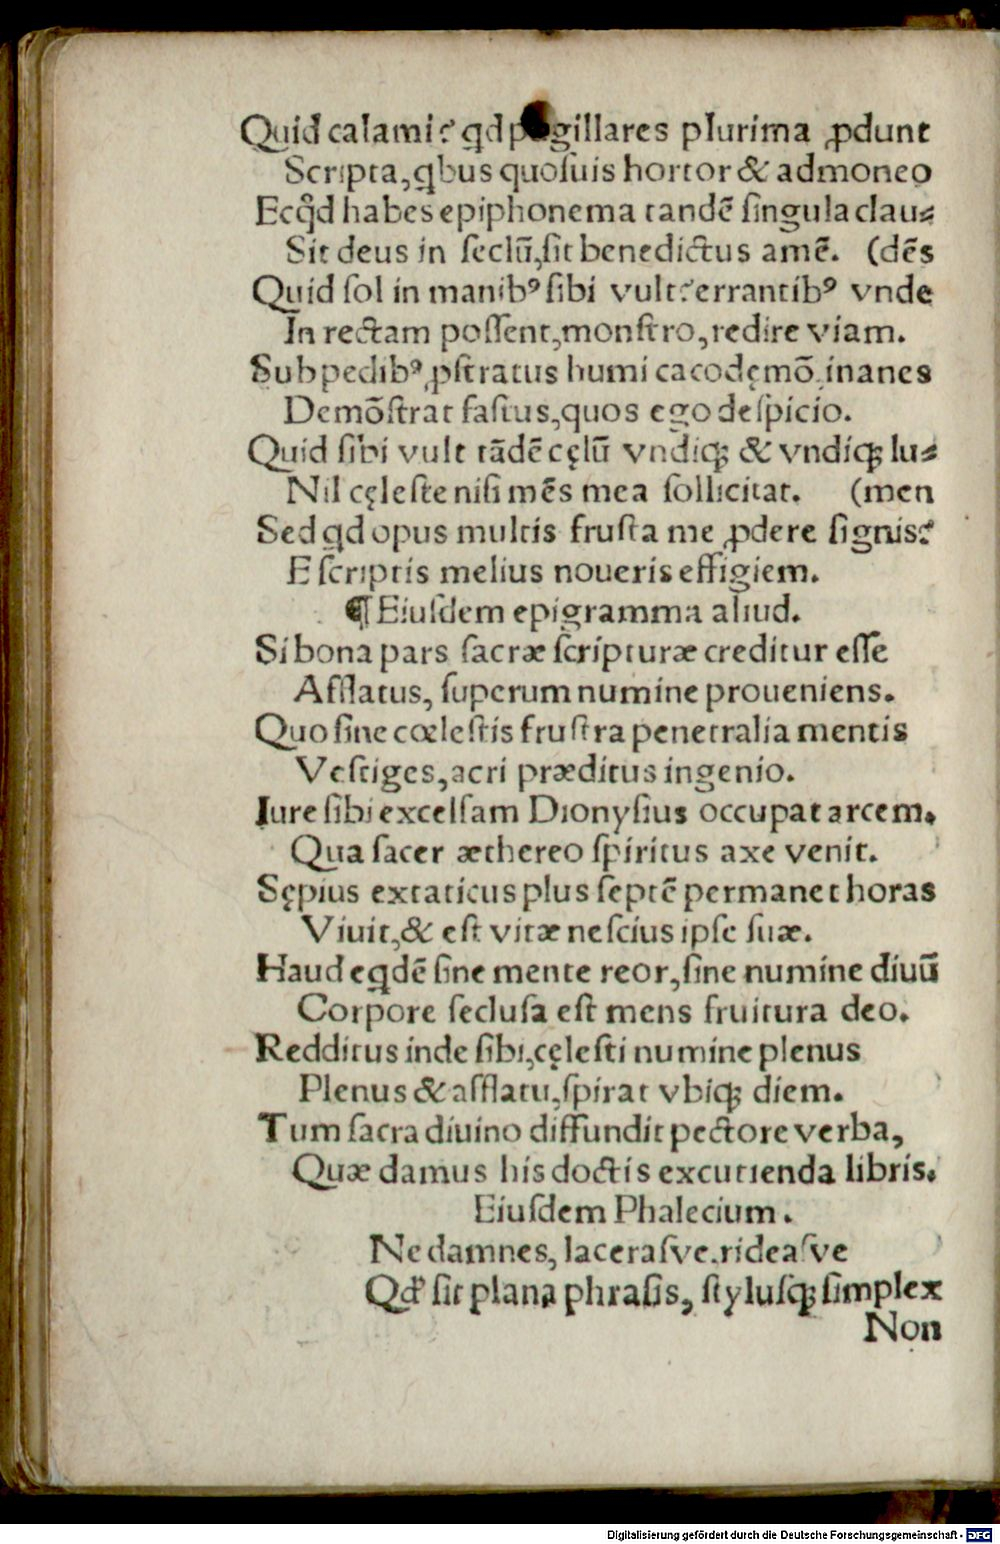 Quid calami? qd pugillares plurima ꝓdunt
Scripta, qbus quoſuis hortor & admoneo
Ecqd habes epiphonema tandē ſingula clau⸗
Sit deus in ſeclū, ſit benedictus amē. (dēs
Quid ſol in manibꝰ ſibi vult? errantibꝰ vnde
In rectam poſſent, monſtro, redire viam.
Sub pedibꝰ, ꝓſtratus humi cacodęmō inanes
Demōſtrat faſtus, quos ego deſpicio.
Quid ſibi vult tādē cęlū vndiqꝫ & vndiqꝫ lu⸗
Nil cęleſte niſi mēs mea ſollicitat. (men
Sed qd opus multis fruſta me ꝓdere ſignis?
E ſcriptis melius noueris effigiem.
¶ Eiuſdem epigramma aliud.
Si bona pars ſacræ ſcripturæ creditur eſſe
Afflatus, ſuperum numine proueniens.
Quo ſine cœleſtis fruſtra penetralia mentis
Veſtiges, acri præditus ingenio.
Iure ſibi excelſam Dionyſius occupat arcem.
Qua ſacer æthereo ſpiritus axe venit.
Sępius extaticus plus ſeptē permanet horas
Viuit, & eſt vitæ neſcius ipſe ſuæ.
Haud eqdē ſine mente reor, ſine numine diuū
Corpore ſecluſa eſt mens fruitura deo.
Redditus inde ſibi, cęleſti numine plenus
Plenus & afflatu, ſpirat vbiqꝫ diem.
Tum ſacra diuino diffundit pectore verba,
Quæ damus his doctis excutienda libris.
Eiuſdem Phalecium.
Ne damnes, laceraſve, rideaſve
Qd ſit plana phraſis, ſtyluſqꝫ ſimplex
Non
Digitalisierung gefördert durch die Deutsche Forschungsgemeinschaft - DFG